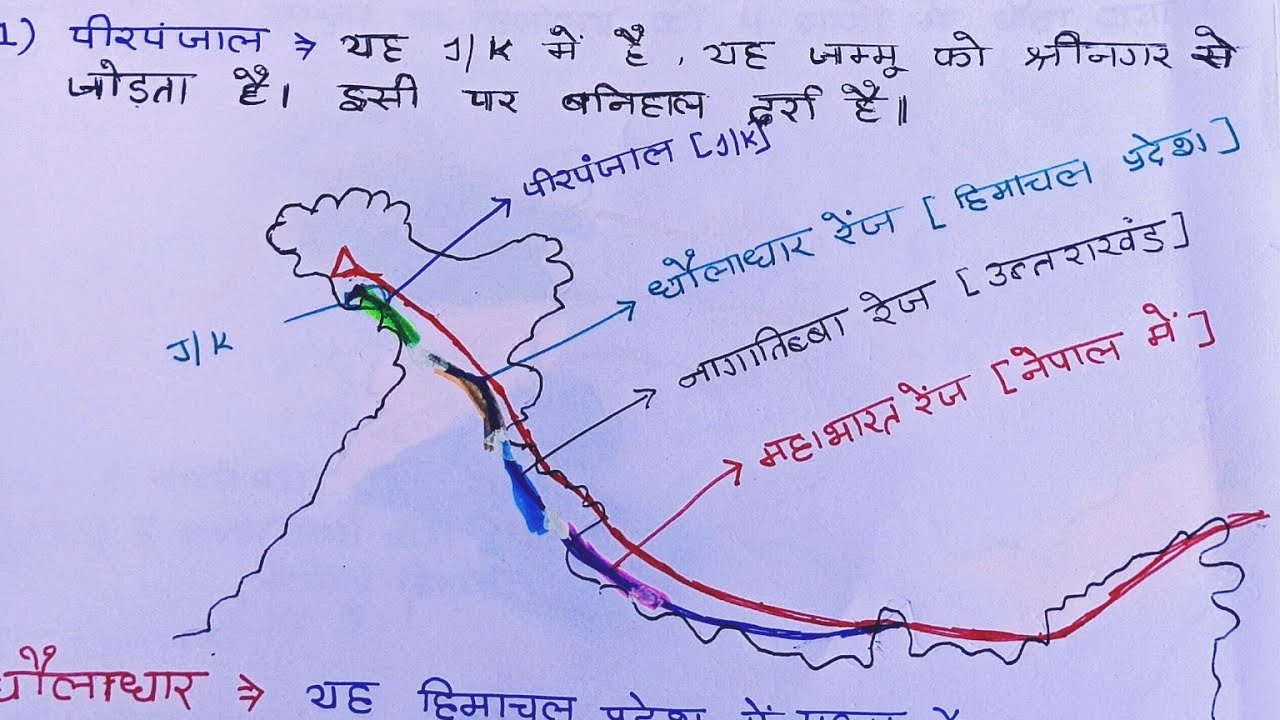 1) पीरपंजाल ⇒ यह J/K में है, यह जम्मू को श्रीनगर से
जोड़ता है। इसी पर बनिहाल दर्रा है॥
पीरपंजाल [J/K]
धौलाधार रेंज [हिमाचल प्रदेश]
नागातिब्बा रेंज [उत्तराखंड]
महाभारत रेंज [नेपाल में]
J/K
धौलाधार ⇒ यह हिमाचल प्रदेश में